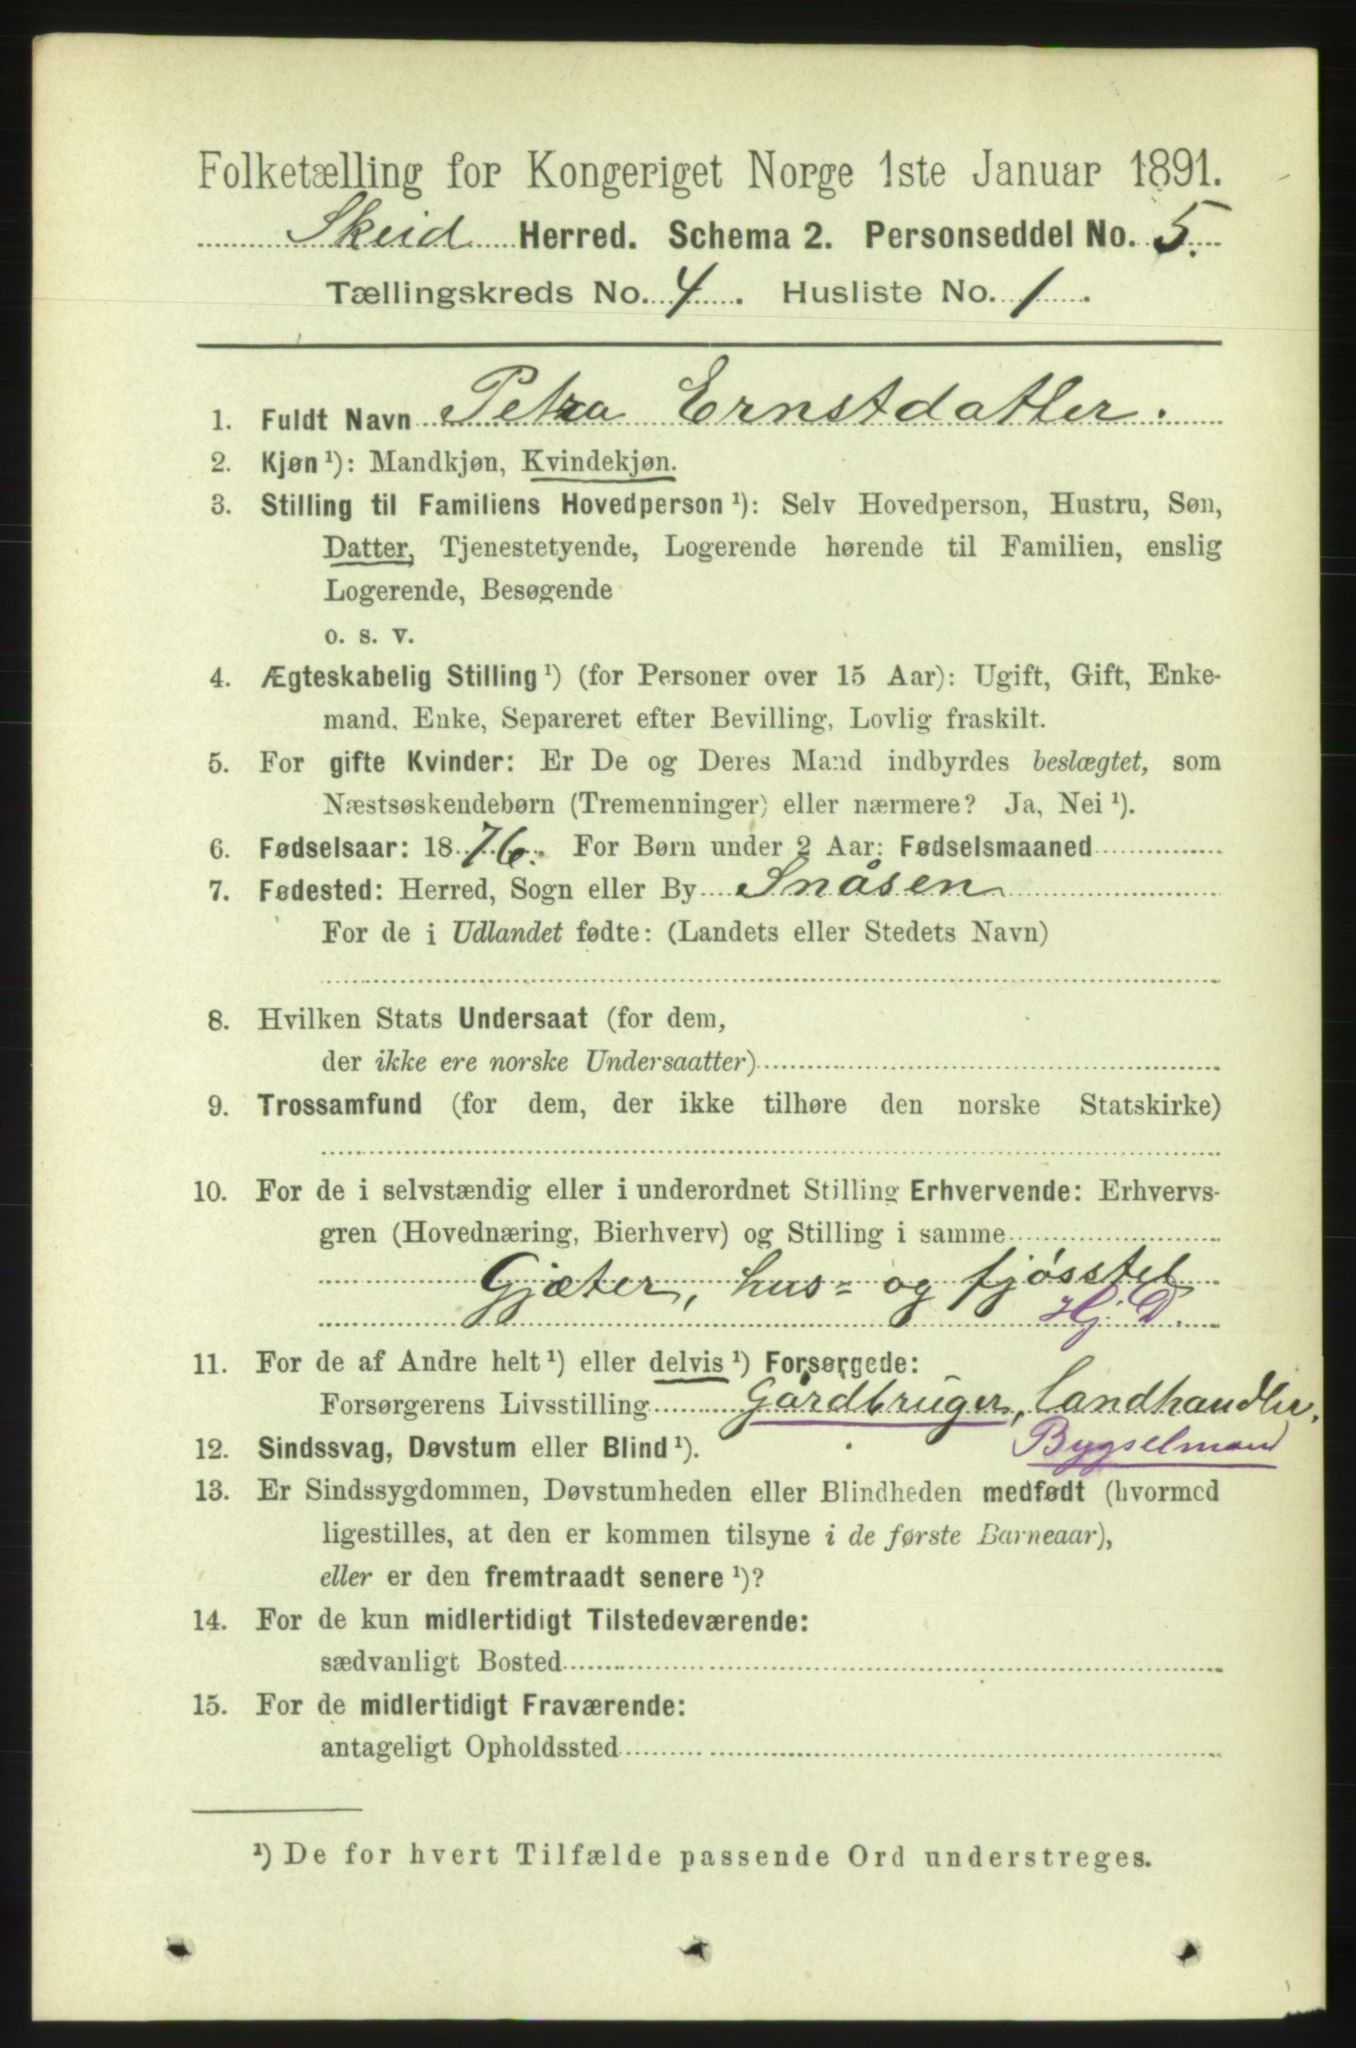 Folketælling for Kongeriget Norge 1ste Januar 1891.
Skeid Herred. Schema 2. Personseddel No. 5.
Tællingskreds No. 4. Husliste No. 1.
1. Fuldt Navn Petra Ernstdatter.
2. Kjøn ¹): Mandkjøn, Kvindekjøn.
3. Stilling til Familiens Hovedperson ¹): Selv Hovedperson, Hustru, Søn,
Datter, Tjenestetyende, Logerende hørende til Familien, enslig
Logerende, Besøgende
o. s. v.
4. Ægteskabelig Stilling ¹) (for Personer over 15 Aar): Ugift, Gift, Enke-
mand, Enke, Separeret efter Bevilling, Lovlig fraskilt.
5. For gifte Kvinder: Er De og Deres Mand indbyrdes beslægtet, som
Næstsøskendebørn (Tremenninger) eller nærmere? Ja, Nei ¹).
6. Fødselsaar: 1876. For Børn under 2 Aar: Fødselsmaaned
7. Fødested: Herred, Sogn eller By Snåsen
For de i Udlandet fødte: (Landets eller Stedets Navn)
8. Hvilken Stats Undersaat (for dem,
der ikke ere norske Undersaatter)
9. Trossamfund (for dem, der ikke tilhøre den norske Statskirke)
10. For de i selvstændig eller i underordnet Stilling Erhvervende: Erhvervs-
gren (Hovednæring, Bierhverv) og Stilling i samme
Gjæter, hus- og fjøsstel
Hj. D.
11. For de af Andre helt ¹) eller delvis ¹) Forsørgede:
Forsørgerens Livsstilling Gårdbruger, landhandler.
12. Sindssvag, Døvstum eller Blind ¹). Bygselmand
13. Er Sindssygdommen, Døvstumheden eller Blindheden medfødt (hvormed
ligestilles, at den er kommen tilsyne i de første Barneaar),
eller er den fremtraadt senere ¹)?
14. For de kun midlertidigt Tilstedeværende:
sædvanligt Bosted
15. For de midlertidigt Fraværende:
antageligt Opholdssted
¹) De for hvert Tilfælde passende Ord understreges.